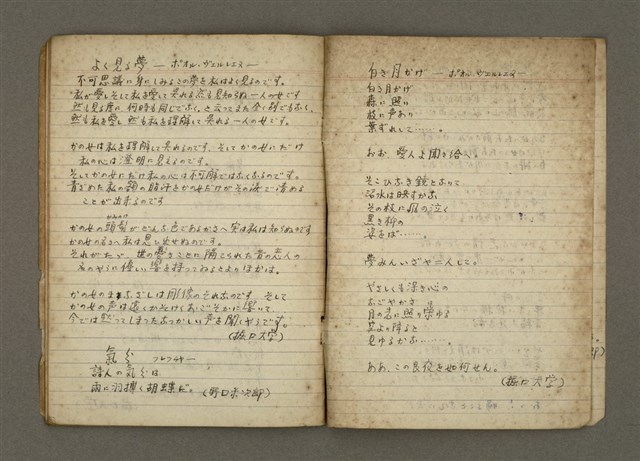 よく見る夢 ― ポオル・ヴェルレエヌ ―
不可思議に身にしみるこの夢を私はよく見るのです。
私が愛しそして私を愛して呉れる然も見知らぬ一人の女です
然も見る度に、何時も同じでなく、と云ってまた全く別でもなく、
然も私を愛し然も私を理解して呉れる一人の女です。
かの女は私を理解して呉れるのです、そしてかの女にだけ
私の心は澄明に見えるのです。
そしてかの女にだけ私の心は不可解ではなくなるのです。
青ざめた私の額の汗をかの女だけがその涙で清める
ことが出来るのです
かの女の頭髪がどんな色であるかさへ実は私は知らぬのです
かの女の名さへ私は思ひ出せぬのです。
それがただ
昔の恋人の
名のやうに優しい響を持ってゐるとよりほかは。
かの女のまなざしは彫像のそれなのです、そして
かの女の声は遠くかそけくおごそかに響いて
今では黙ってしまったなつかしい声を聞くやうです。
(堀口大学)
氣分
詩人の氣分は
雨に羽搏く胡蝶だ。(野口米次郎)
白き月かげ ― ポオル・ヴェルレエヌ ―
白き月かげ
森に照り
枝に声あり
葉ずれして……。
おお、愛人よ聞き給へ。
そこひなき鏡となりて
沼水は映すかな
その枝に風の泣く
黒き柳の
姿をば……。
夢みんいざや二人して。
やさしくも深き心の
なごやかさ
月の色に照り栄ゆる
空より降ると
見ゆるかな……。
ああ、この良夜を如何せん。
(堀口大学)